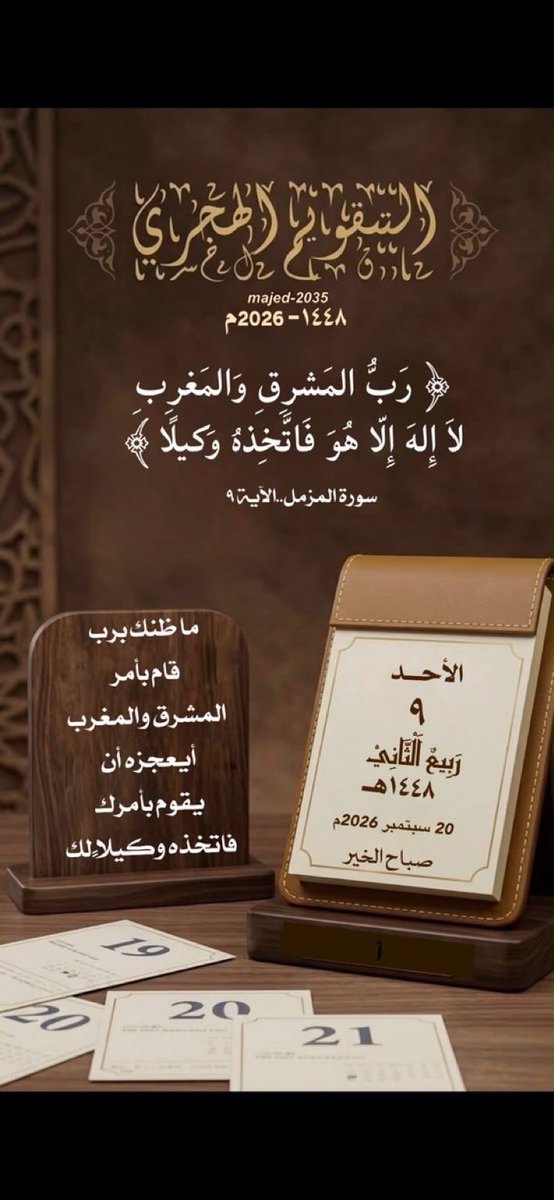 التقويم الهجري
majed-2035
١٤٤٨-2026م
﴿ رَبُّ المَشرِقِ وَالمَغرِبِ
لاَ إِلهَ إِلّا هُوَ فَاتَّخِذهُ وَكيلًا ﴾
سورة المزمل..الآية ٩
ما ظنك برب
قام بأمر
المشرق والمغرب
أيعجزه أن
يقوم بأمرك
فاتخذه وكيلا لك
الأحـد
٩
رَبِيعُ الثَّانِيْ
١٤٤٨هـ
20 سبتمبر 2026م
صباح الخير
أ
19
20
20
21